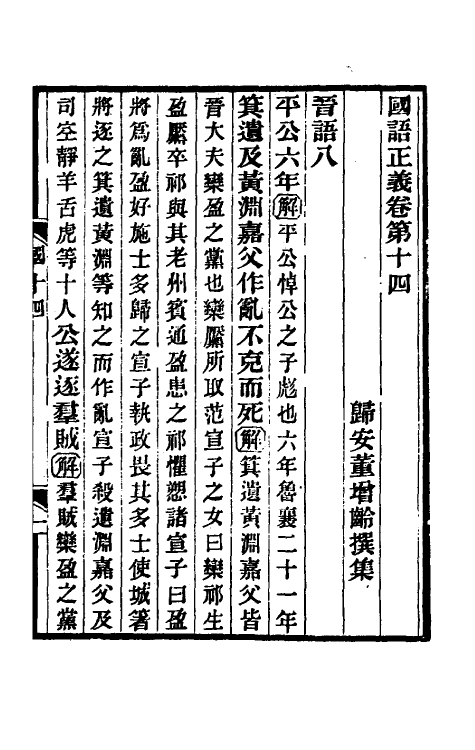 國語正義卷第十四
歸安董增齡撰集
晉語八
平公六年解平公悼公之子彪也六年魯襄二十一年
箕遺及黃淵嘉父作亂不克而死解箕遺黃淵嘉父皆
晉大夫欒盈之黨也欒黶所取范宣子之女曰欒祁生
盈黶卒祁與其老州賓通盈患之祁懼愬諸宣子曰盈
將爲亂盈好施士多歸之宣子執政畏其多士使城箸
將逐之箕遺黃淵等知之而作亂宣子殺遺淵嘉父及
司空靜羊舌虎等十人公遂逐羣賊解羣賊欒盈之黨
國十四
一